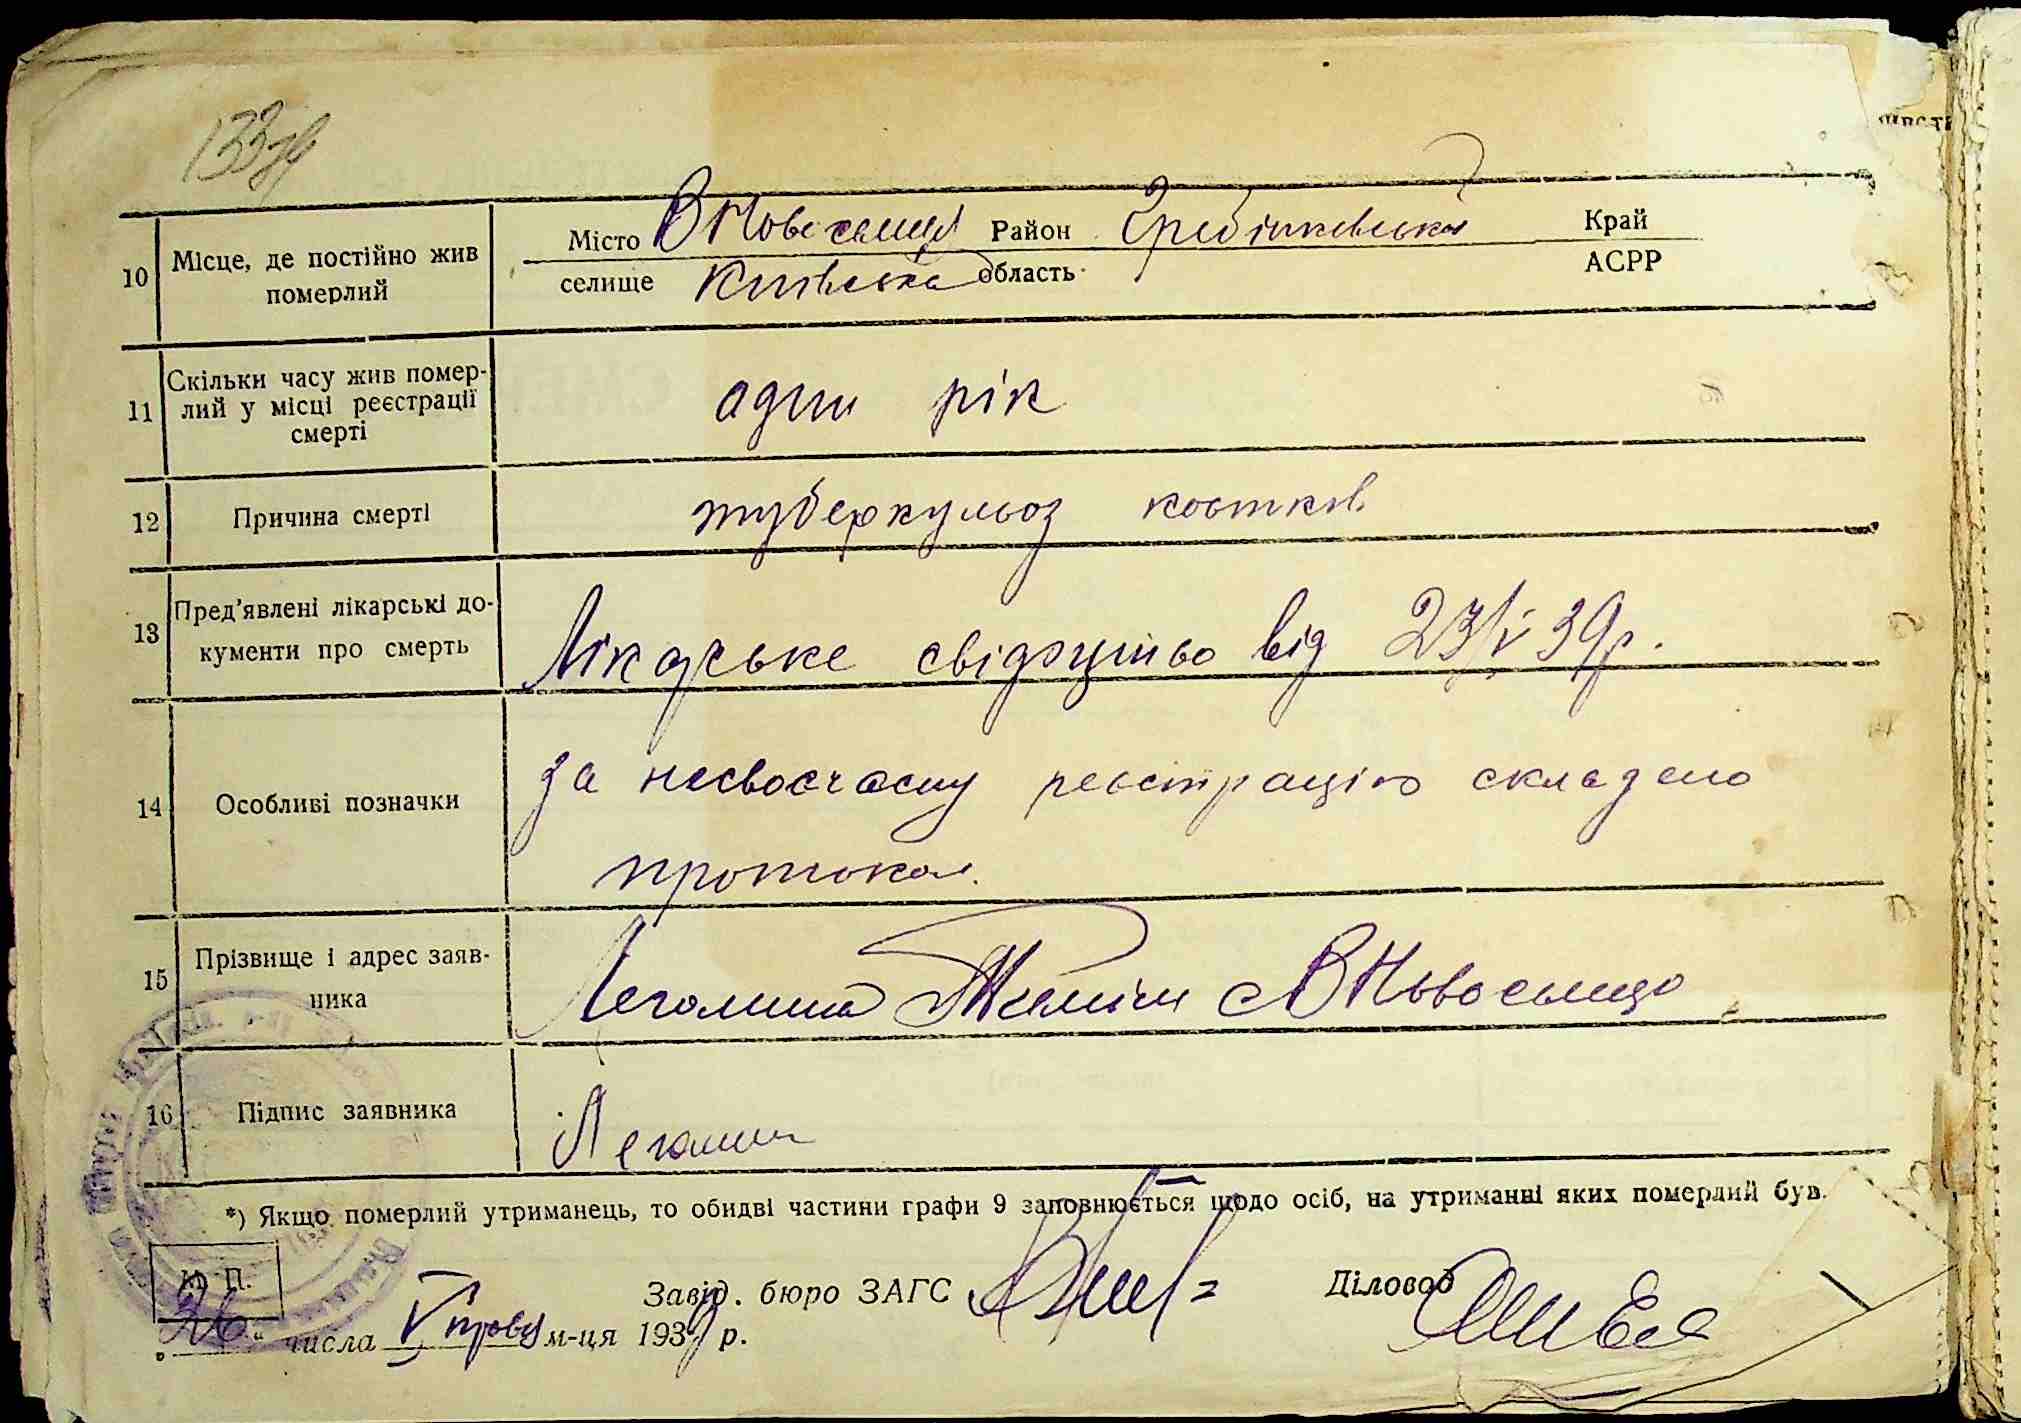 133
10 Місце, де постійно жив померлий
Місто В Новоселиця Район Гребінківський Край
селище Київська область АСРР
11 Скільки часу жив помер-
лий у місці реєстрації
смерті
адин рік
12 Причина смерті
туберкульоз костків
13 Пред'явлені лікарські до-
кументи про смерть
Лікарське свідоцтво від 23/V 39р.
14 Особливі позначки
за несвоєчасну реєстрацію складено
протокол.
15 Прізвище і адрес заяв-
ника
с В Новоселиця
16 Підпис заявника
*) Якщо померлий утриманець, то обидві частини графи 9 заповнюється щодо осіб, на утриманні яких померлий був.
М. П.
Завід. бюро ЗАГС
Діловод
„26“ числа V травня м-ця 1939 р.